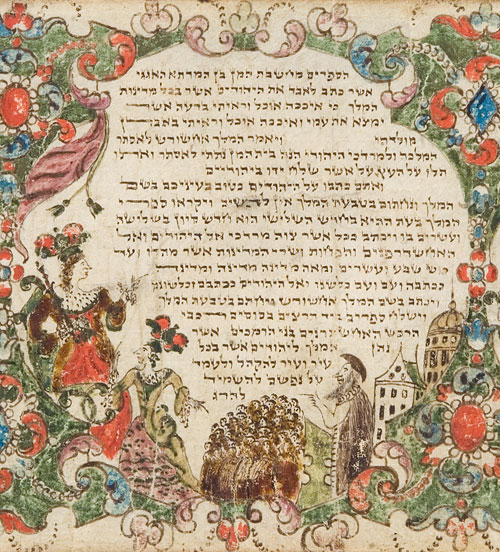 הספרים מחשבת המן בן המדתא האגגי
אשר כתב לאבד את היהודים אשר בכל מדינות
המלך כי איככה אוכל וראיתי ברעה אשר
ימצא את עמי ואיככה אוכל וראיתי באבדן
מולדתי ויאמר המלך אחשורש לאסתר
המלכה ולמרדכי היהודי הנה בית המן נתתי לאסתר ואתו
תלו על העץ על אשר שלח ידו ביהודים
ואתם כתבו על היהודים כטוב בעיניכם בשם
המלך ונחתום בטבעת המלך אין להשיב ויקראו ספרי
המלך בעת ההיא בחודש השלישי הוא חדש סיון בשלישה
ועשרים בו ויכתב ככל אשר צוה מרדכי אל היהודים ואל
האחשדרפנים והפחות ושרי המדינות אשר מהדו ועד
כוש שבע ועשרים ומאה מדינה מדינה ומדינה
ככתבה ועם ועם כלשנו ואל היהודים ככתבם וכלשונם
ויכתב בשם המלך אחשורש ויחתם בטבעת המלך
וישלח ספרים ביד הרצים בסוסים רכבי
הרכש האחשתרנים בני הרמכים אשר
נתן המלך ליהודים אשר בכל
עיר ועיר להקהל ולעמד
על נפשם להשמיד
להרג